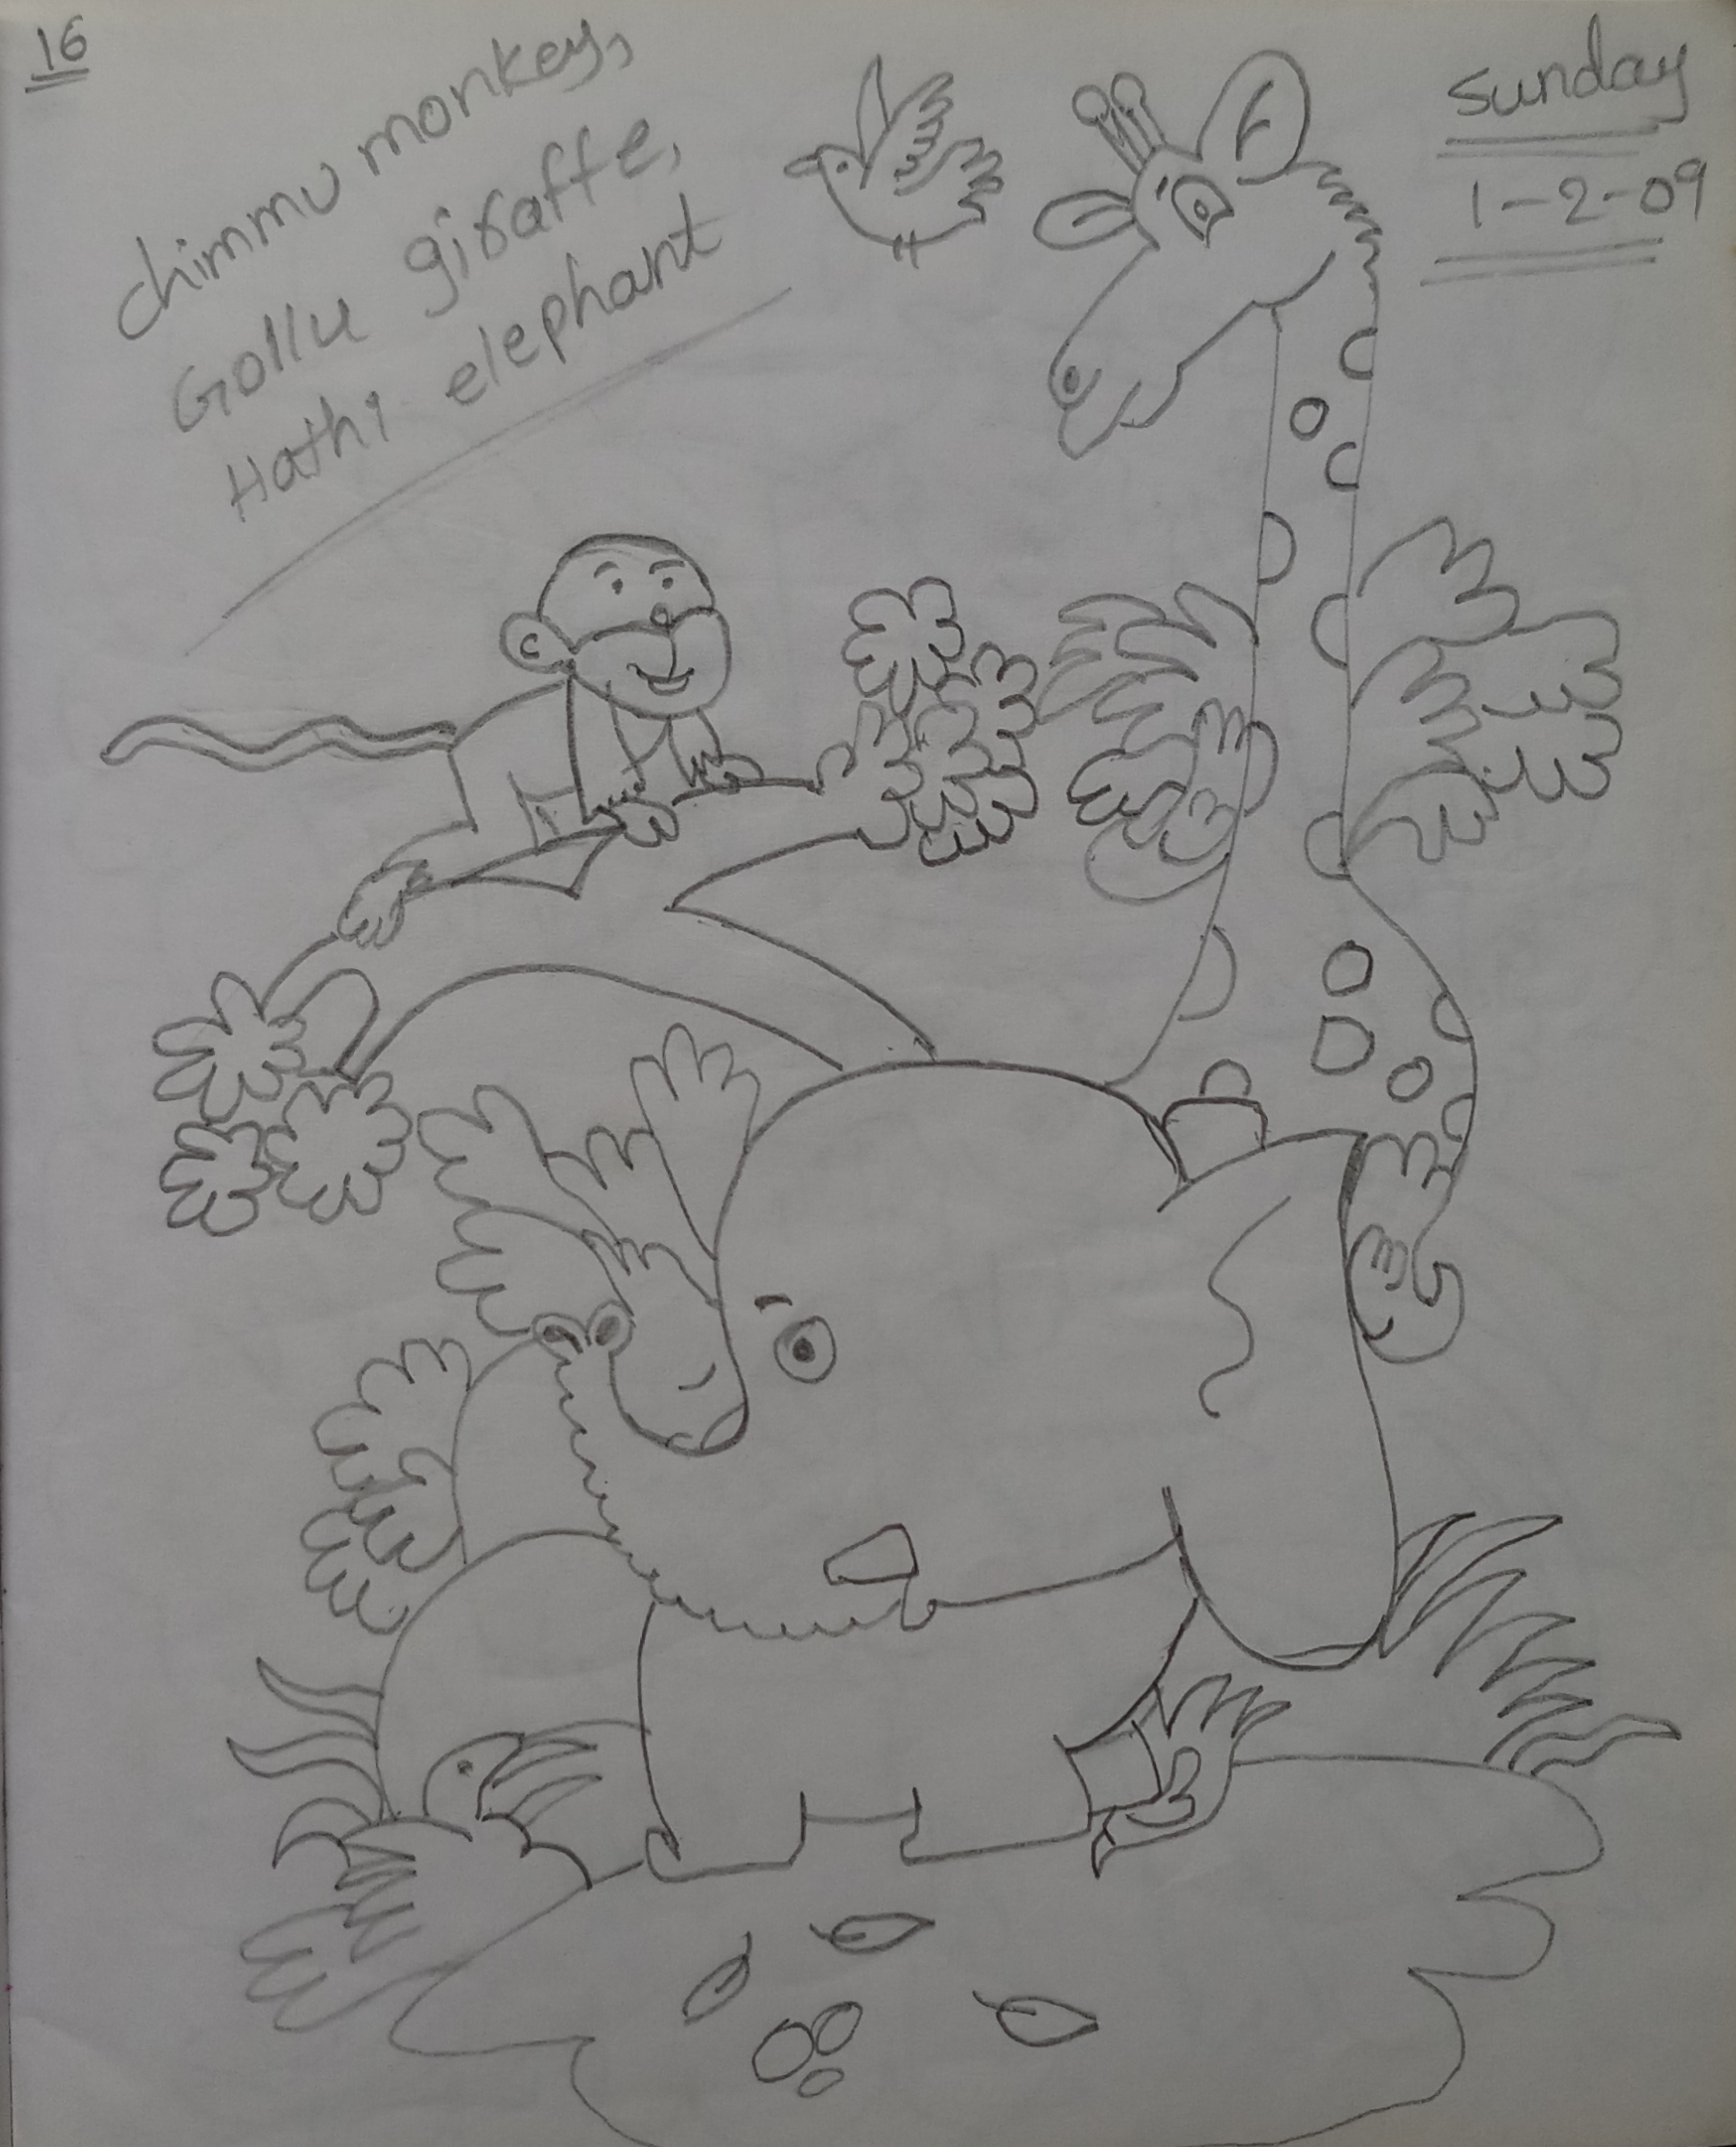 16
chimmu monkey,
Gollu giraffe,
Hathi elephant
sunday
1-2-09